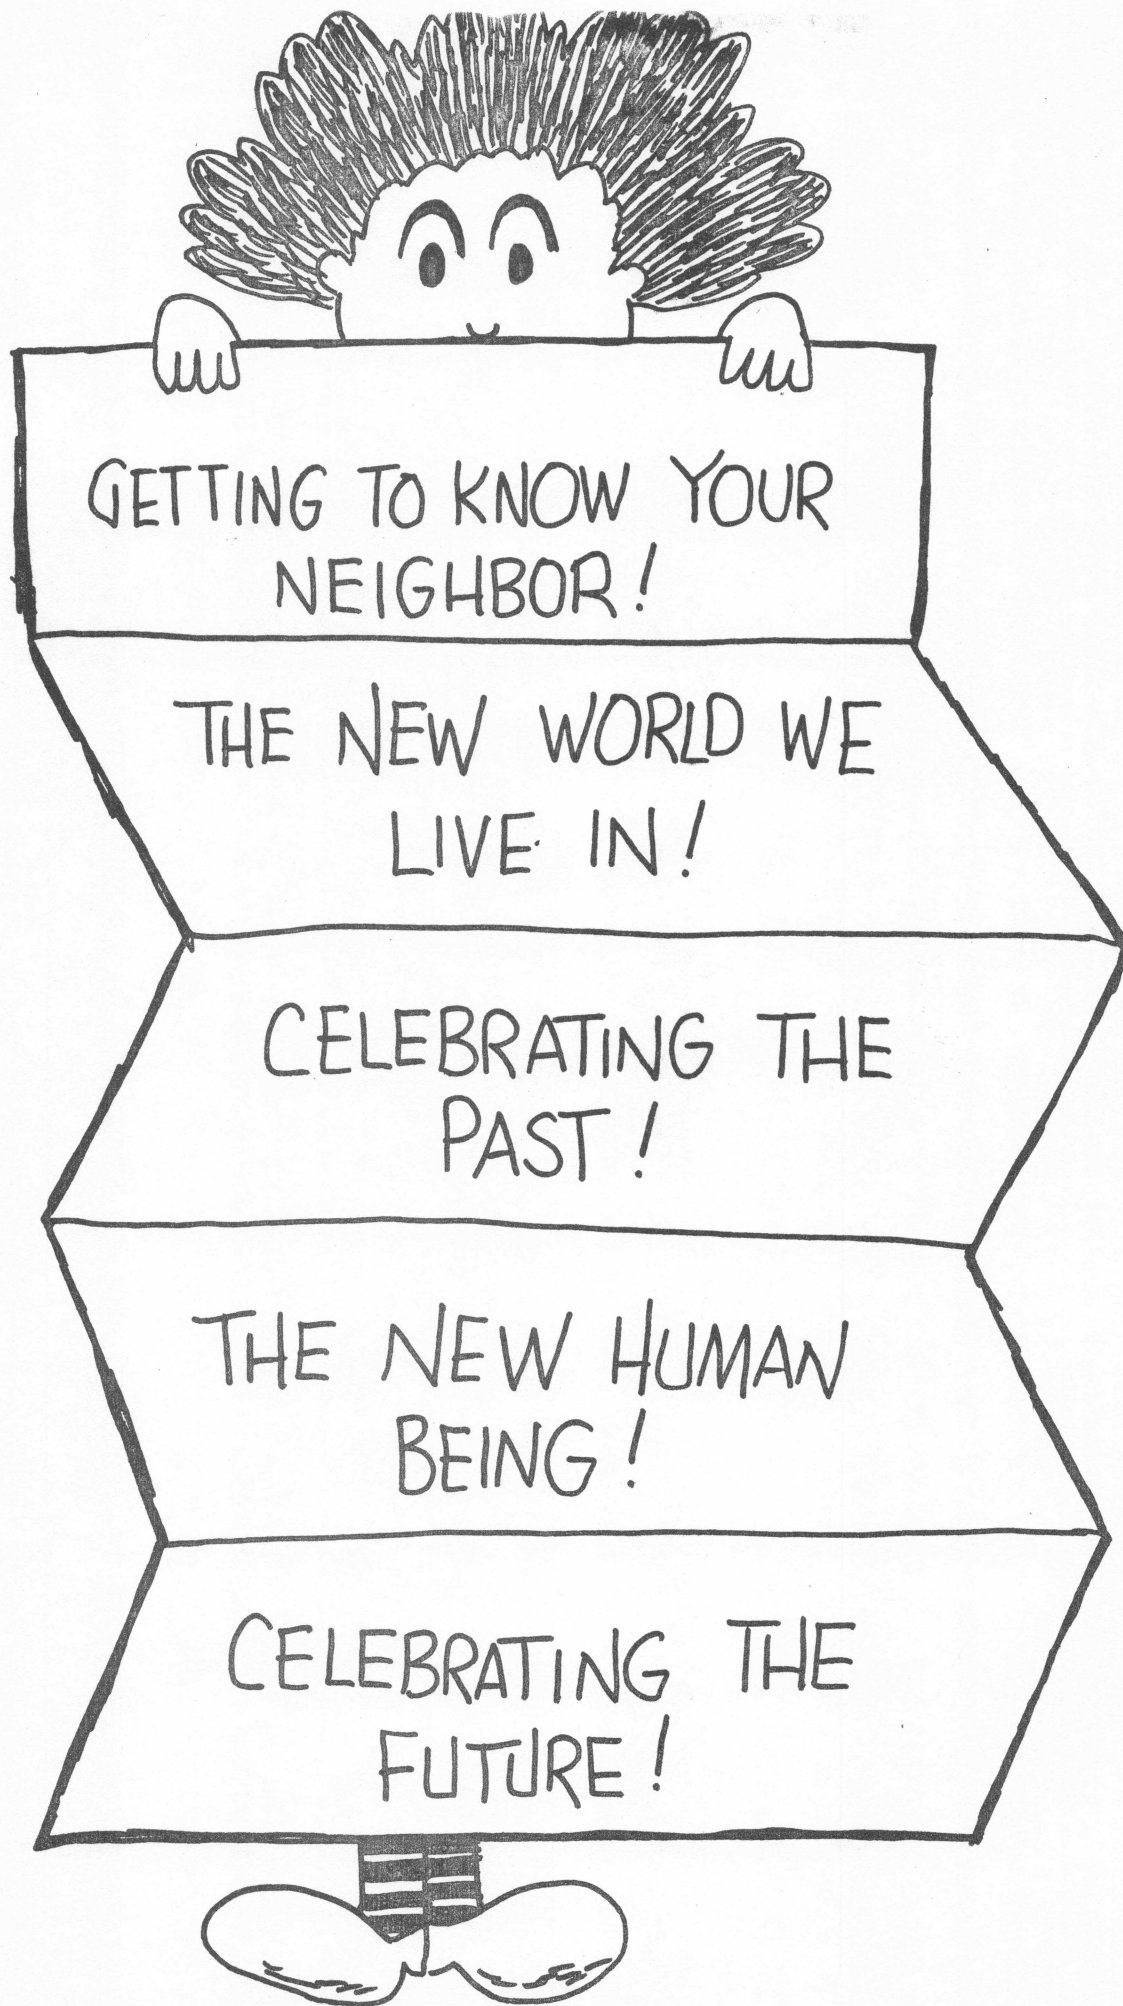 GETTING TO KNOW YOUR
NEIGHBOR!
THE NEW WORLD WE
LIVE IN!
CELEBRATING THE
PAST!
THE NEW HUMAN
BEING!
CELEBRATING THE
FUTURE!